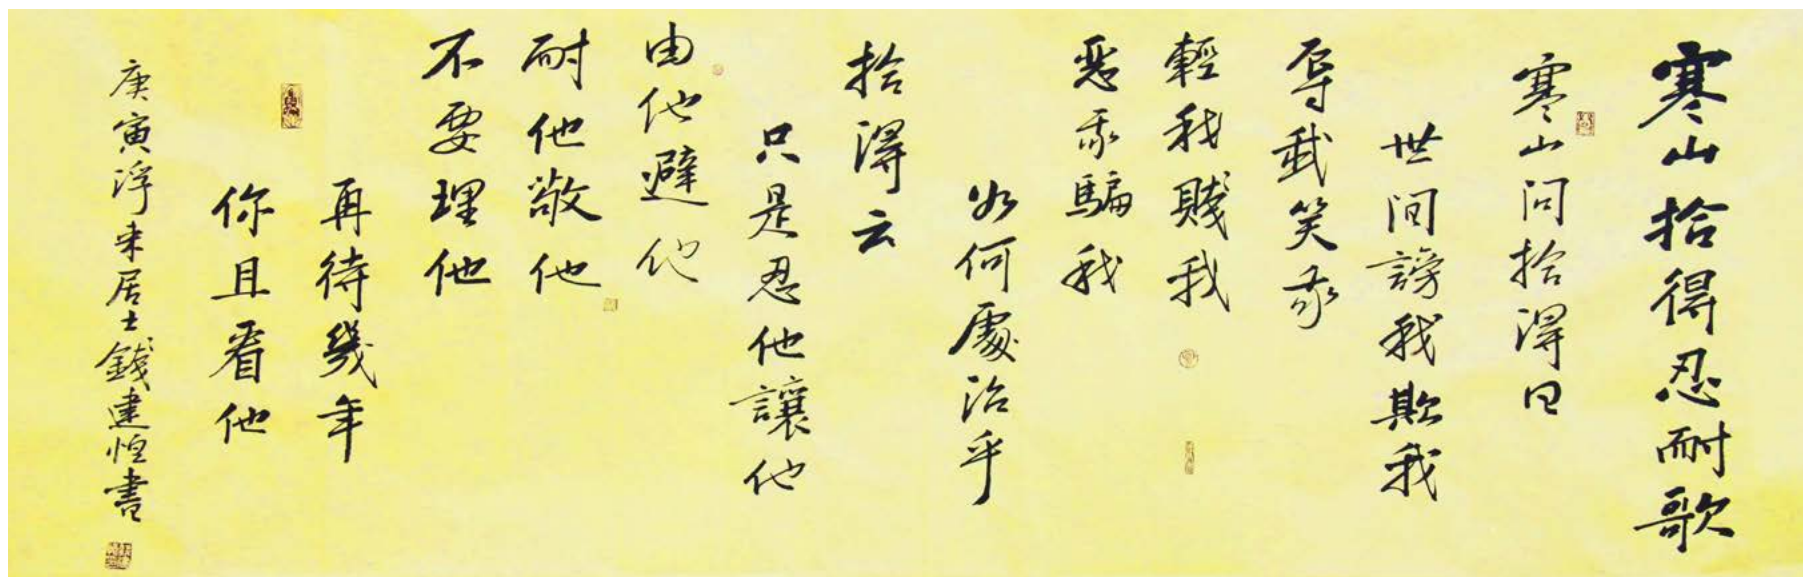 寒山拾得忍耐歌
寒山问拾得曰
世间謗我欺我
辱我笑我
輕我賤我
惡我騙我
如何處治乎
拾得云
只是忍他讓他
由他避他
耐他敬他
不要理他
再待幾年
你且看他
庚寅浮来居士錢建書